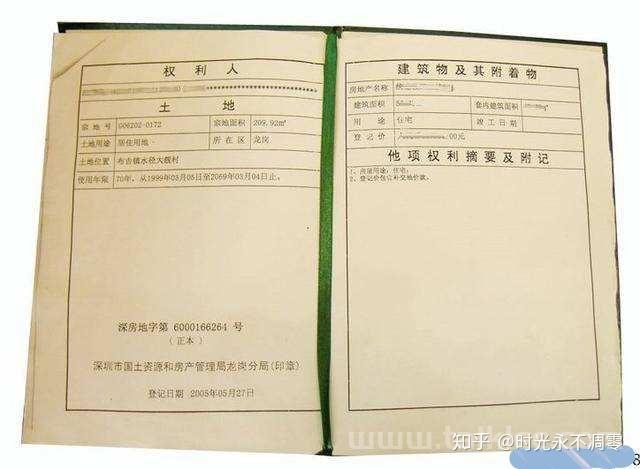 权利人
土地
宗地号 G06202-0172 宗地面积 209.92m²
土地用途 居住用地 所在区 龙岗
土地位置 布吉镇水径大靓村
使用年限 70年，从1999年03月05日至2069年03月04日止。
深房地字第 6000166264 号
（正本）
深圳市国土资源和房产管理局龙岗分局(印章)
登记日期 2005年05月27日
建筑物及其附着物
房地产名称
建筑面积 套内建筑面积
用途 住宅 竣工日期
登记价 .00元
他项权利摘要及附记
1、房屋用途：住宅；
2、登记价包含补交地价款。
知乎 @时光永不凋零